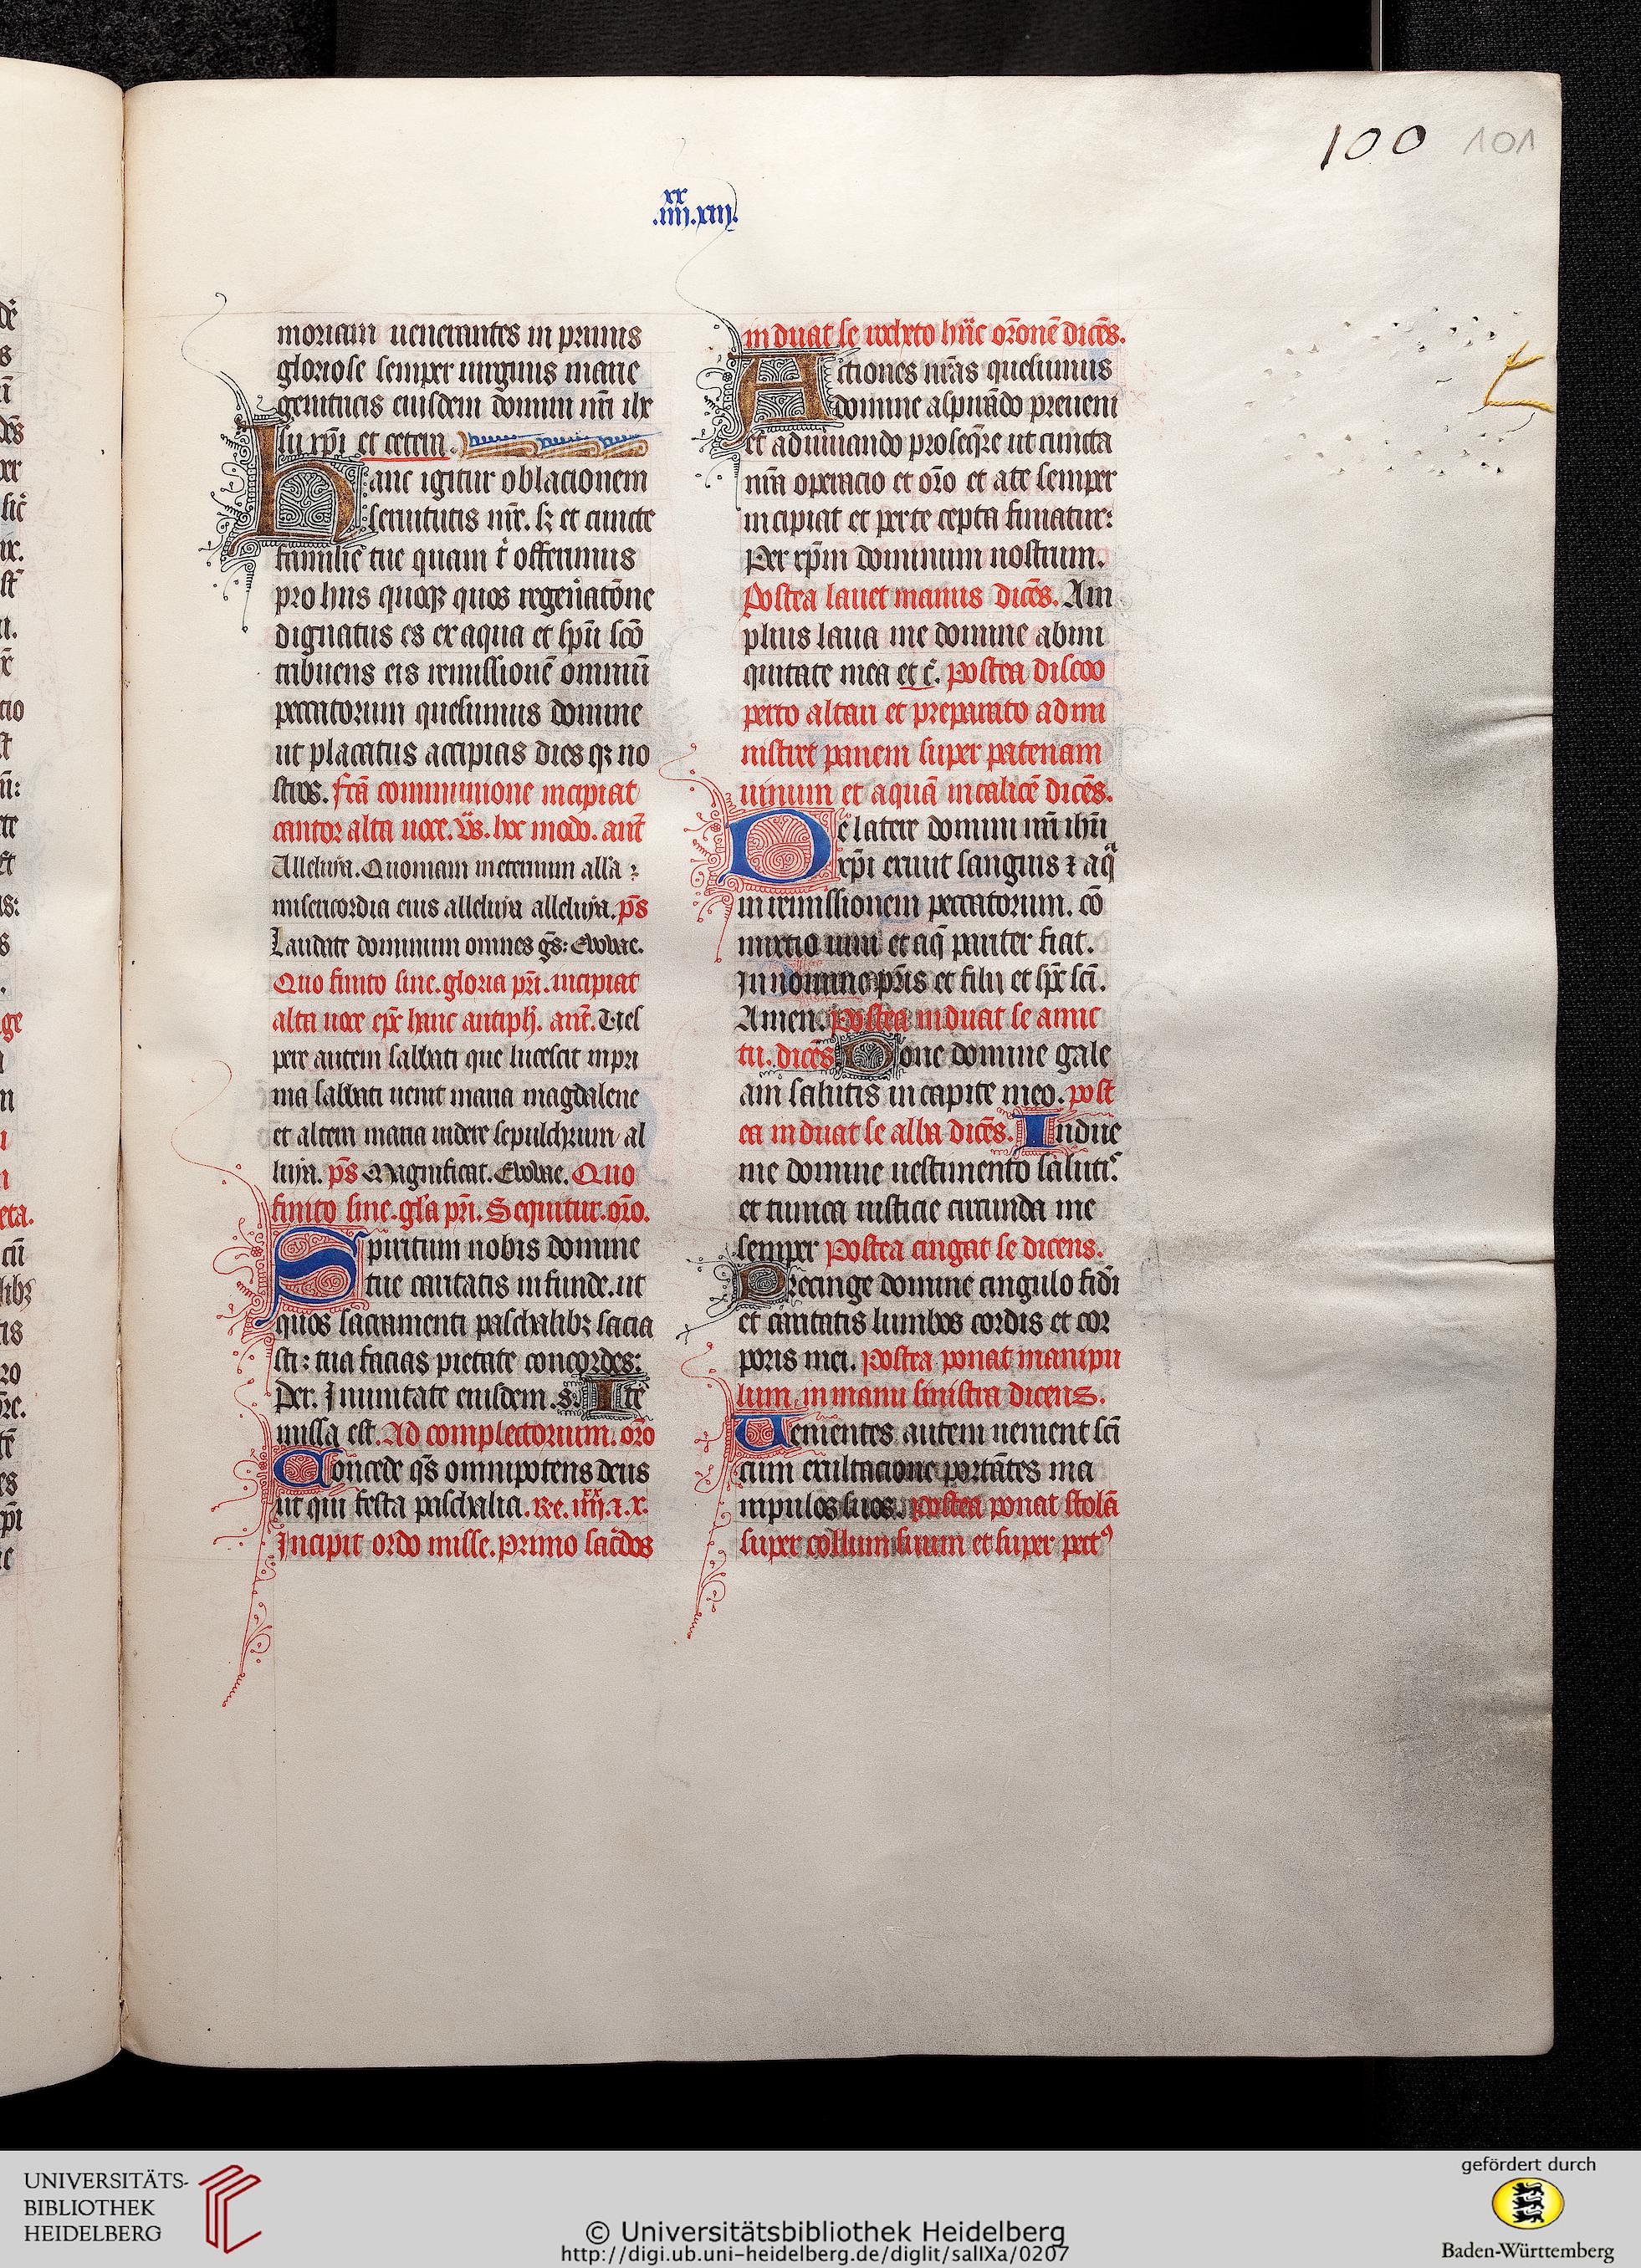 100 101
xx
.iiij.xiij.
moriam uenerantes in primis
gloriose semper uirginis marie
genitricis eiusdem domini nr̄i ihe
su xp̄i et cetera.
hanc igitur oblacionem
seruitutis nr̄e. sꝫ et cuncte
familie tue quam t̄ offerimus
pro hiis quoqꝫ quos regen̄atōne
dignatus es ex aqua et sp̄u sc̄o
tribuens eis remissionē omniū
peccatorum quesumus domine
ut placatus accipias dies qꝫ no
stros. fc̄a communione incipiat
cantor alta uoce. v̄s. hoc modo. ant̄
Alleluya. Quoniam in eternum all'a :
misericordia eius alleluya alleluya. p̄s
Laudate dominum omnes gs̄: Evovae.
Quo finito sine. gloria pr̄i. incipiat
alta uoce ep̄c hanc antiph̄. ant̄. Ves
pere autem sabbati que lucescit inpri
ma sabbati uenit maria magdalene
et altera maria uidere sepulchrum al
luya. p̄s Magnificat. Evovae. Quo
finito sine. gl'a pr̄i. Sequitur. or̄o.
Spiritum nobis domine
tue caritatis infunde. ut
quos sacramenti paschalibꝫ sacia
sti : tua facias pietate concordes:
Per. In unitate eiusdem. s. Ite
missa est. Ad completorium. or̄o
Concede qs̄ omnipotens deus
ut qui festa paschalia. Re. iiij.xx. x.
Incipit ordo misse. Primo sac̄dos
induat se rocheto hāc or̄onē dicēs.
Actiones nr̄as quesumus
domine aspirādo preueni
et adiuuando proseq̄re ut cuncta
nr̄a operacio et or̄o et a te semper
incipiat et per te cepta finiatur:
Per xp̄m dominum nostrum.
Postea lauet manus dicēs. Am
plius laua me domine ab ini
quitate mea et c̄. postea discoo
perto altari et preparato admi
nistret panem super patenam
uinum et aquā in calicē dicēs.
De latere domini nr̄i ihū
xp̄i exiuit sanguis ⁊ aqᵃ
in remissionem peccatorum. cō
mixtio uini et aq̄ pariter fiat.
In nomine pr̄is et filij et sp̄c sc̄i.
Amen. Postea induat se amic
tu. dicēs Pone domine gale
am salutis in capite meo. post
ea induat se alba dicēs. Indue
me domine uestimento salutis
et tunica iusticie circunda me
semper Postea cingat se dicens.
Precinge domine cingulo fidei
et caritatis lumbos cordis et cor
poris mei. Postea ponat manipu
lum in manu sinistra dicens.
Uenientes autem uenient sc̄i
cum exultacione portātes ma
nipulos suos. Postea ponat stolā
super collum suum et super pectꝰ
UNIVERSITÄTS-
BIBLIOTHEK
HEIDELBERG
© Universitätsbibliothek Heidelberg
http://digi.ub.uni-heidelberg.de/diglit/salIXa/0207
gefördert durch
Baden-Württemberg